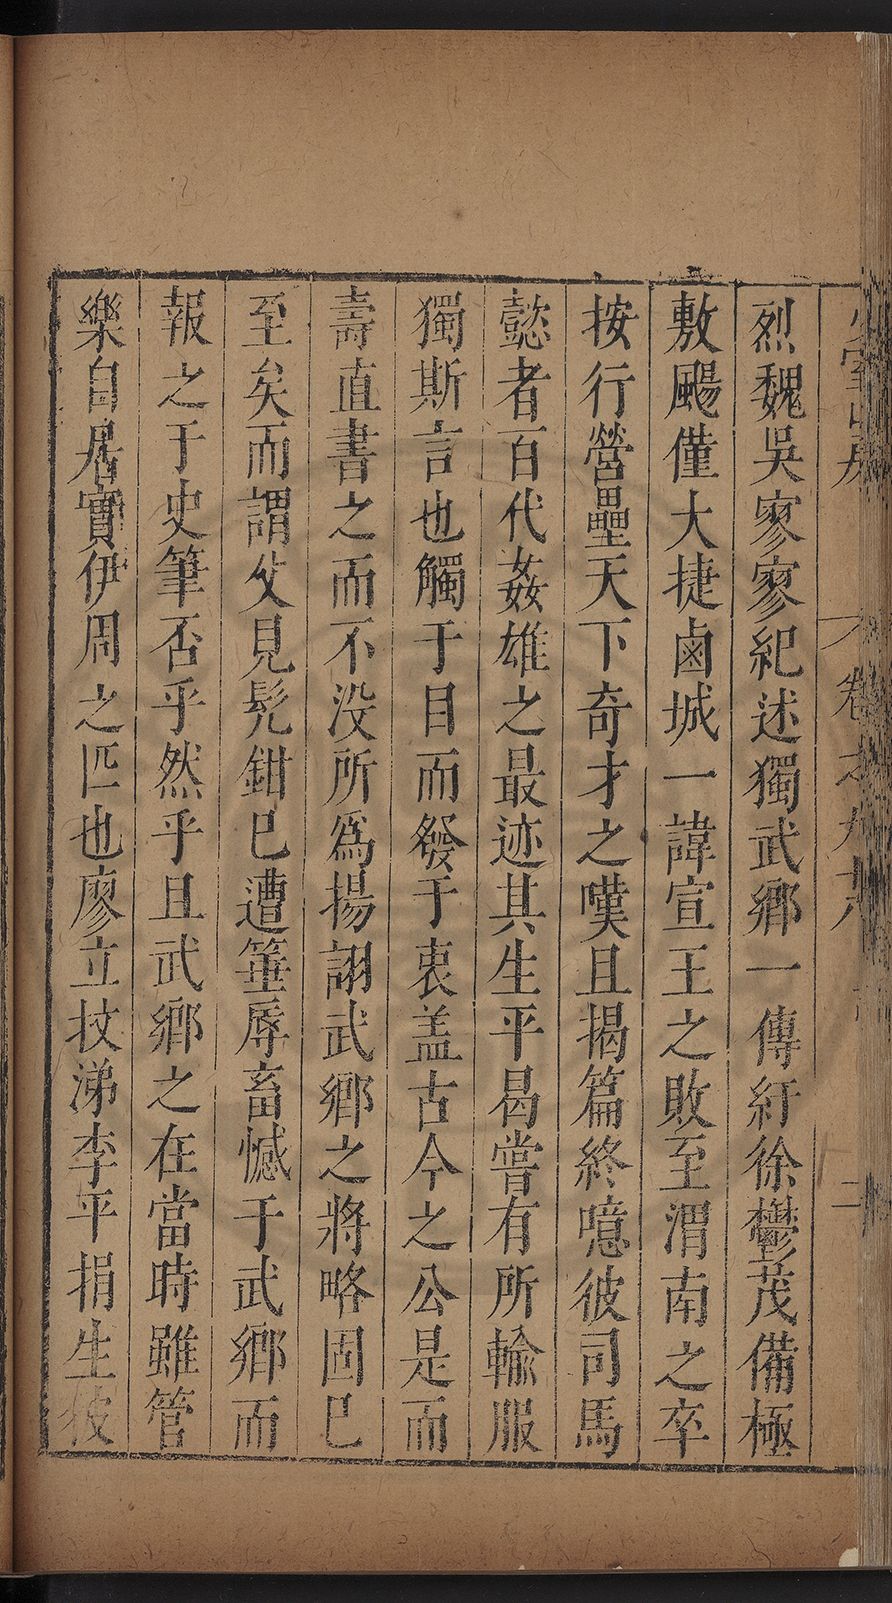 少室山房 卷之九十八 二
烈魏吳寥寥紀述獨武鄉一傳紆徐鬱茂備極
敷颺僅大捷鹵城一諱宣王之敗至渭南之卒
按行營壘天下奇才之嘆且揭篇終噫彼司馬
懿者百代姦雄之最迹其生平曷嘗有所輸服
獨斯言也觸于目而發于衷盖古今之公是而
壽直書之而不没所爲揚詡武鄉之將略固已
至矣而謂父見髠鉗已遭箠辱畜憾于武鄉而
報之于史筆否乎然乎且武鄉之在當時雖管
樂自居實伊周之匹也廖立抆涕李平捐生彼